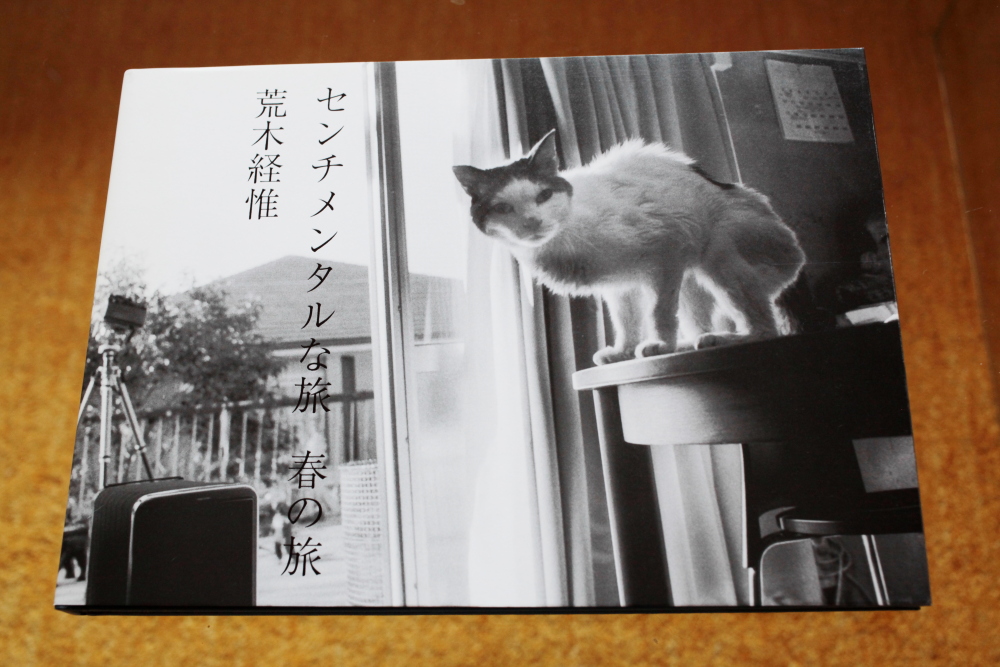 センチメンタルな旅 春の旅
荒木経惟